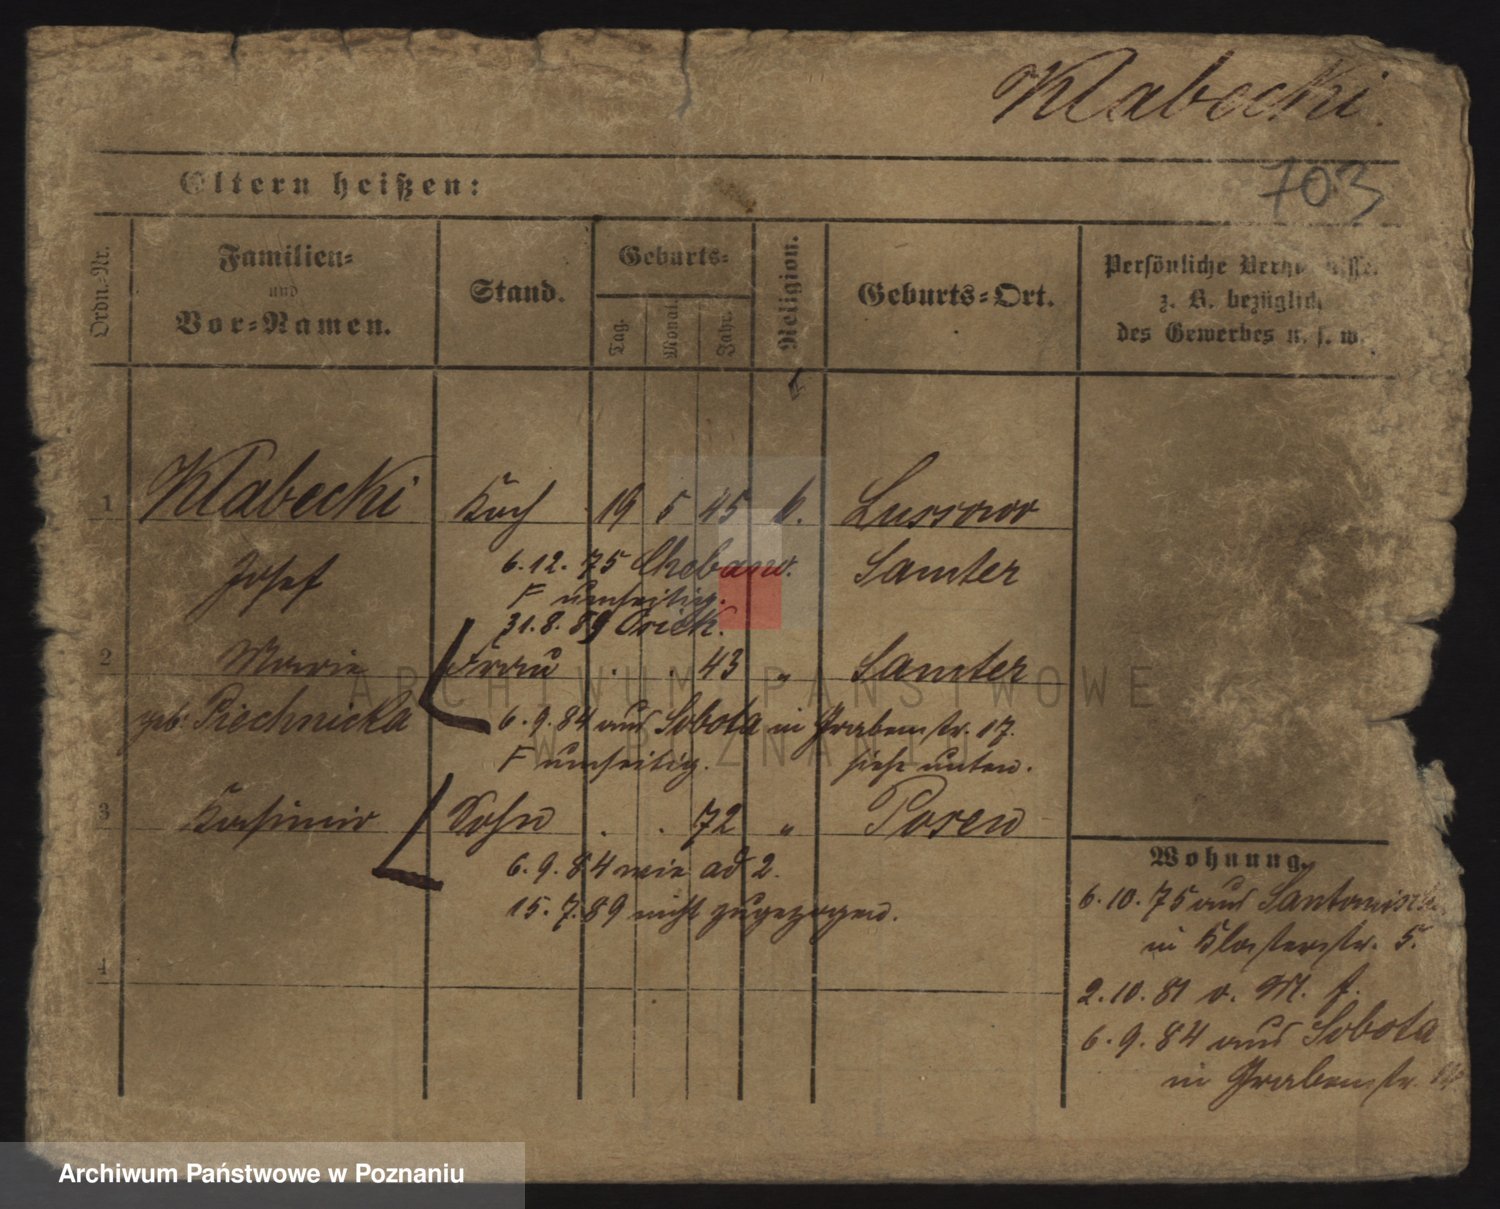 Klabecki
703
Eltern heißen:
Ordn.-Nr.
Familien-
und
Vor-Namen.
Stand.
Geburts-
Tag.
Monat.
Jahr.
Religion.
Geburts-Ort.
Persönliche
z. B. bezüglich
des Gewerbes u. s. w.
1 Klabecki Koch 19 5 45 k. Lussowo
Josef 6. 12. 75 Samter
F umseitig.
31. 8. 89
2 Marie Frau . . 43 " Samter
geb. Piechnicka 6. 9. 84 aus Sobota in Grabenstr. 17.
F umseitig. siehe unten.
3 Kasimir Sohn . . 72 " Posen
6. 9. 84 wie ad 2.
15. 7. 89 nicht zugezogen.
4
Wohnung.
6. 10. 75 aus
in Klosterstr. 5.
2. 10. 81 v. M. f.
6. 9. 84 aus Sobota
in Grabenstr.
ARCHIWUM PAŃSTWOWE
W POZNANIU
Archiwum Państwowe w Poznaniu